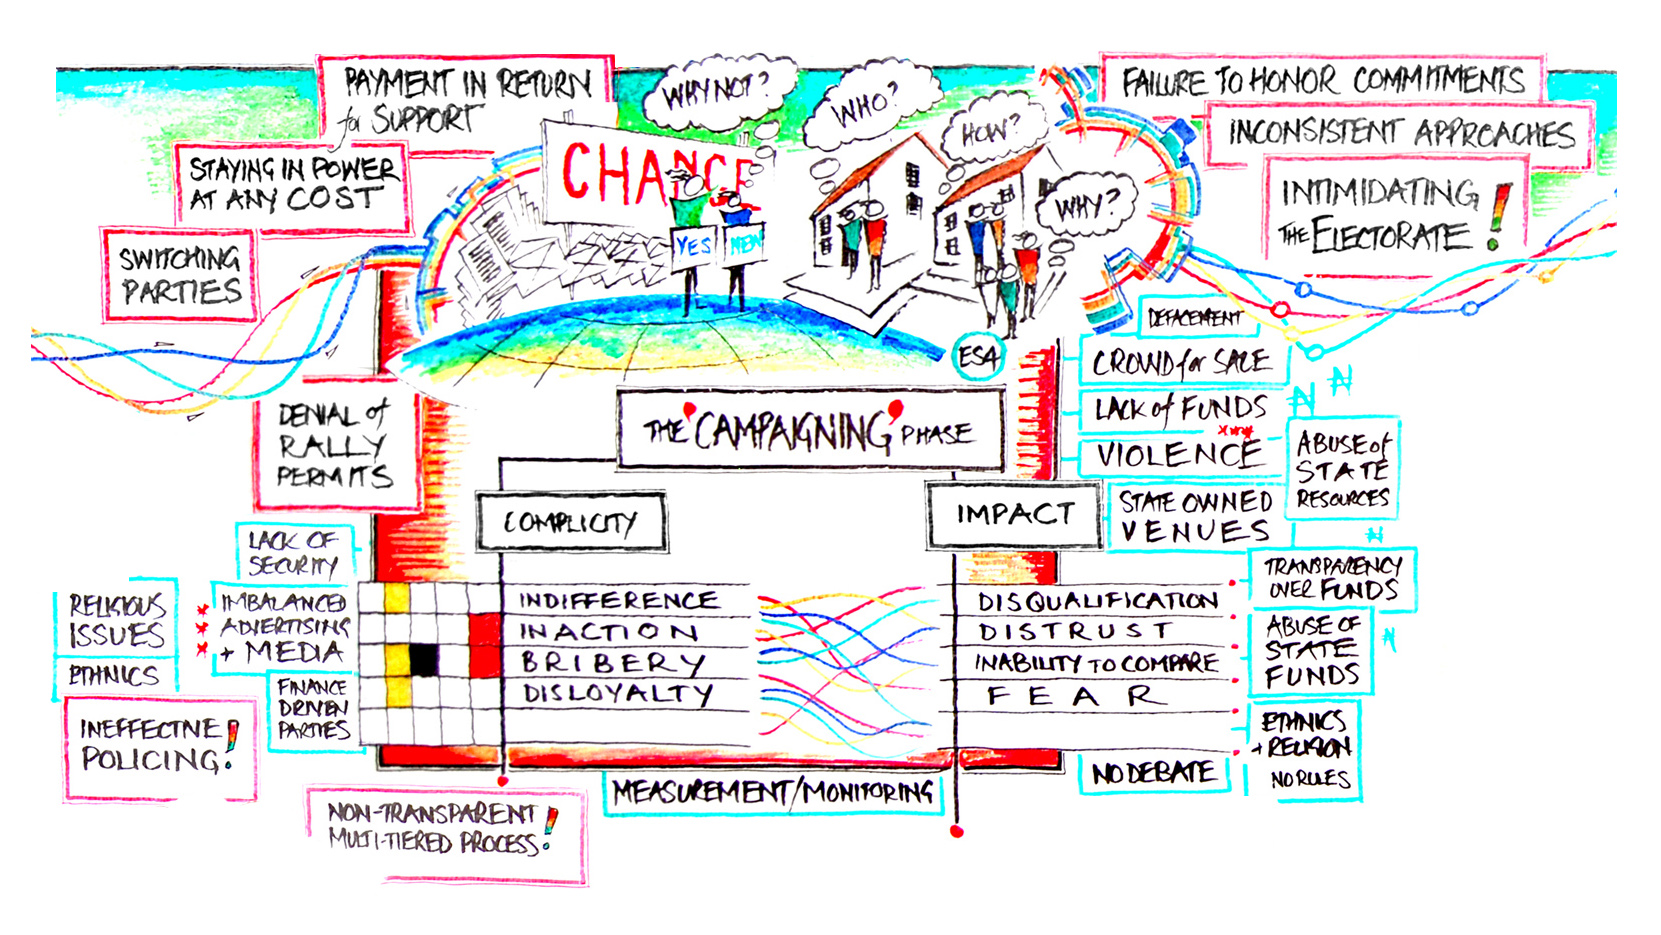 PAYMENT IN RETURN
for SUPPORT
STAYING IN POWER
AT ANY COST
SWITCHING
PARTIES
DENIAL of
RALLY
PERMITS
CHANGE
WHY NOT?
WHO?
HOW?
WHY?
YES
FAILURE TO HONOR COMMITMENTS
INCONSISTENT APPROACHES
INTIMIDATING
THE ELECTORATE!
ES4
THE 'CAMPAIGNING' PHASE
DEFACEMENT
CROWD for SALE
LACK of FUNDS
VIOLENCE
STATE OWNED
VENUES
₦ ₦
ABUSE of
STATE
RESOURCES
₦
TRANSPARENCY
OVER FUNDS
ABUSE OF
STATE
FUNDS
₦
ETHNICS
+ RELIGION
NO RULES
NO DEBATE
COMPLICITY
INDIFFERENCE
INACTION
BRIBERY
DISLOYALTY
IMPACT
DISQUALIFICATION
DISTRUST
INABILITY TO COMPARE
FEAR
LACK OF
SECURITY
IMBALANCED
ADVERTISING
+ MEDIA
FINANCE
DRIVEN
PARTIES
RELIGIOUS
ISSUES
ETHNICS
INEFFECTIVE
POLICING!
NON-TRANSPARENT
MULTI-TIERED PROCESS!
MEASUREMENT/MONITORING